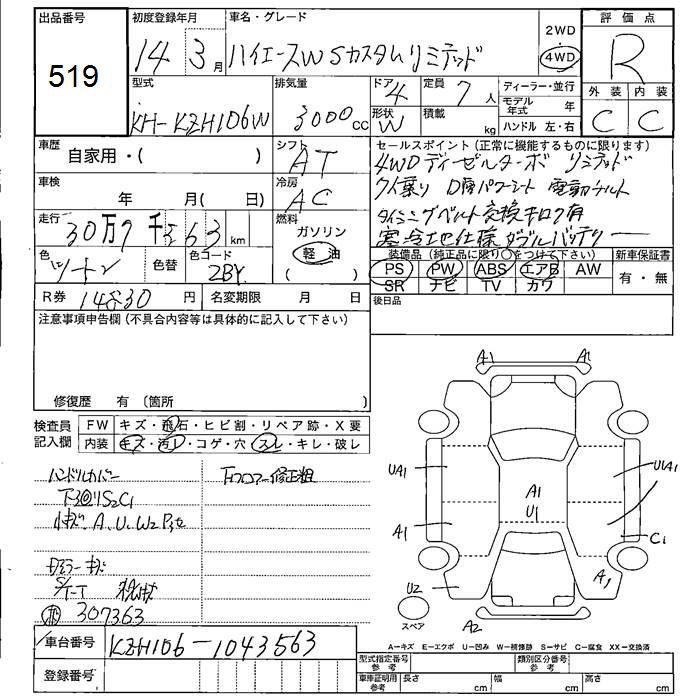 出品番号 初度登録年月 車名・グレード 2WD 4WD 評価点
519 14 3月 ハイエースW Sカスタムリミテッド R
型式 排気量 ドア 定員 ディーラー・並行 外装 内装
KH-KZH106W 3000cc 4 7人 モデル年式 年 C C
形状 W 積載 kg ハンドル 左・右
車歴 シフト セールスポイント(正常に機能するものに限ります)
自家用・( ) AT 4WD ディーゼルターボ リミテッド
車検 冷房 7人乗り
年 月( 日) AC タイミングベルト交換キロク有
走行 燃料 寒冷地仕様 ダブルバッテリー
30万7千563km ガソリン
軽油
( )
色 色替 色コード 装備品(純正品に限り○をつけて下さい) 新車保証書
ツートン 2BY PS PW ABS エアB AW 有・無
SR ナビ TV カワ
R券 円 名変期限 月 日 後日品
注意事項申告欄(不具合内容等は具体的に記入して下さい)
修復歴 有 (箇所 )
検査員記入欄 FW キズ・飛石・ヒビ割・リペア跡・X要
内装 キズ・汚レ・コゲ・穴・スレ・キレ・破レ
ハンドルカバー 下フロアー修正粗
小キズ A、U、W2
S/T-T
307363
車台番号 KZH106-1043563
登録番号
A1 A1
UA1 UA1
A1
U1
A1 C1
U2 A1
スペア A2
A−キズ E−エクボ U−凹み W−補修跡 S−サビ C−腐食 XX−交換済
型式指定番号参考 類別区分番号参考
車庫証明用参考 長さ cm 幅 cm 高さ cm